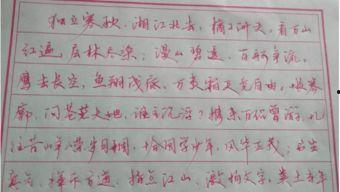 独立寒秋，湘江北去，橘子洲头，看万山
红遍，层林尽染；漫江碧透，百舸争流，
鹰击长空，鱼翔浅底，万类霜天竞自由，怅寥
廓，问苍茫大地，谁主沉浮？携来百侣曾游，忆
往昔峥嵘岁月稠，恰同学少年，风华正茂；书生
意气，挥斥方遒，指点江山，激扬文字，粪土当年